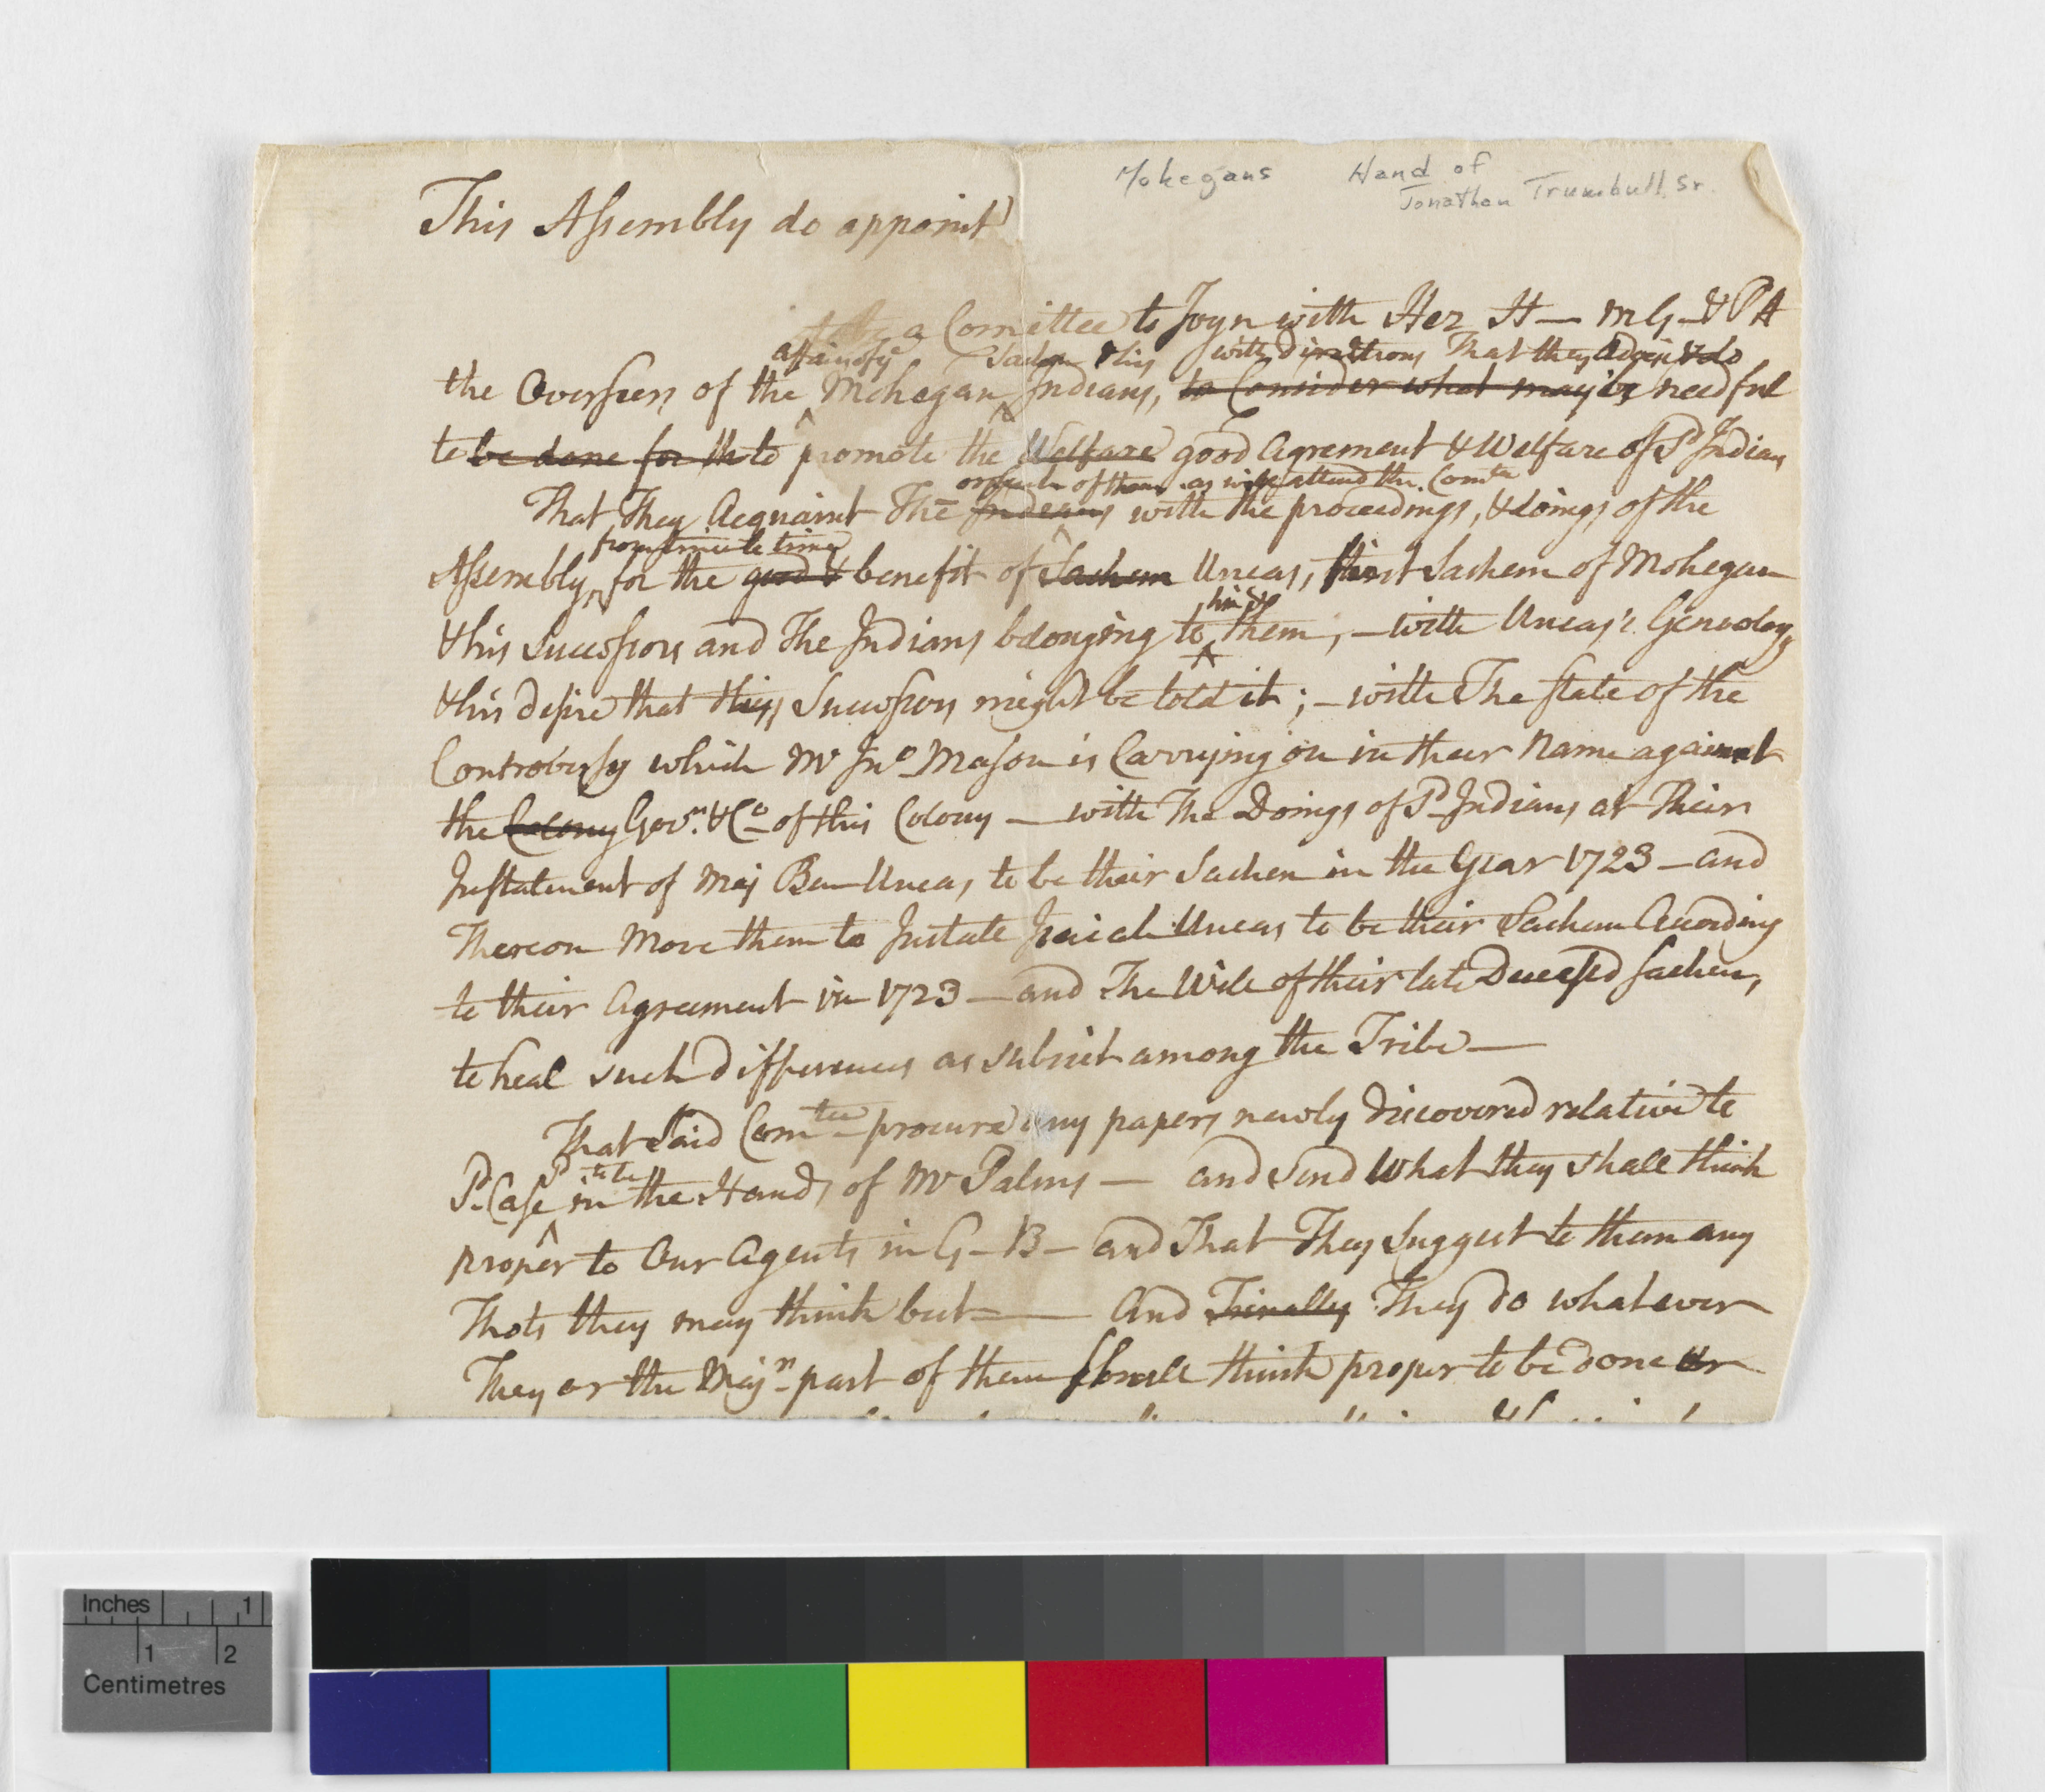 Mohegans Hand of
Jonathan Trumbull Sr.
This Assembly do appoint
to be a Comittee to Joyn with Hez H— M G— & P A
affairs of ye Sachem & his with directions That they Advise & do
the Overseers of the Mohegan Indians, to Consider what may be needful
to be done for th to promote the Welfare good Agrement & Welfare of Sd Indians
or such of them as will attend the Comtee
That They Acquaint The Indians with the proceedings, & doings of the
from time to time
Assembly, for the good & benefit of Sachem Uncas, first Sachem of Mohegan
him &
& his Successors and The Indians belonging to them, — with Uncas's Genealogy
& his desire that his Successors might be told it; — with The state of the
Controversy which Mr Jno Mason is Carrying on in their Name against
the Colony Govr & Co of this Colony — with The Doings of Sd Indians at Their
Instatement of Maj Ben Uncas, to be their Sachem in the Year 1723 — and
Thereon Move them to Instate Isaiah Uncas to be their Sachem According
to their Agreement in 1723 — and The Will of their late Deceased Sachem,
to heal such differences as subsist among the Tribe —
That Said Comtee procure any papers newly discovered relative to
Sd Case in the Hands of Mr Palms — and Send What they shall think
proper to Our Agents in G— B— and That They Suggest to them any
Thots they may think best — And Finally They do whatever
They or the Majr part of them shall think proper to be done
Inches 1
1 2
Centimetres